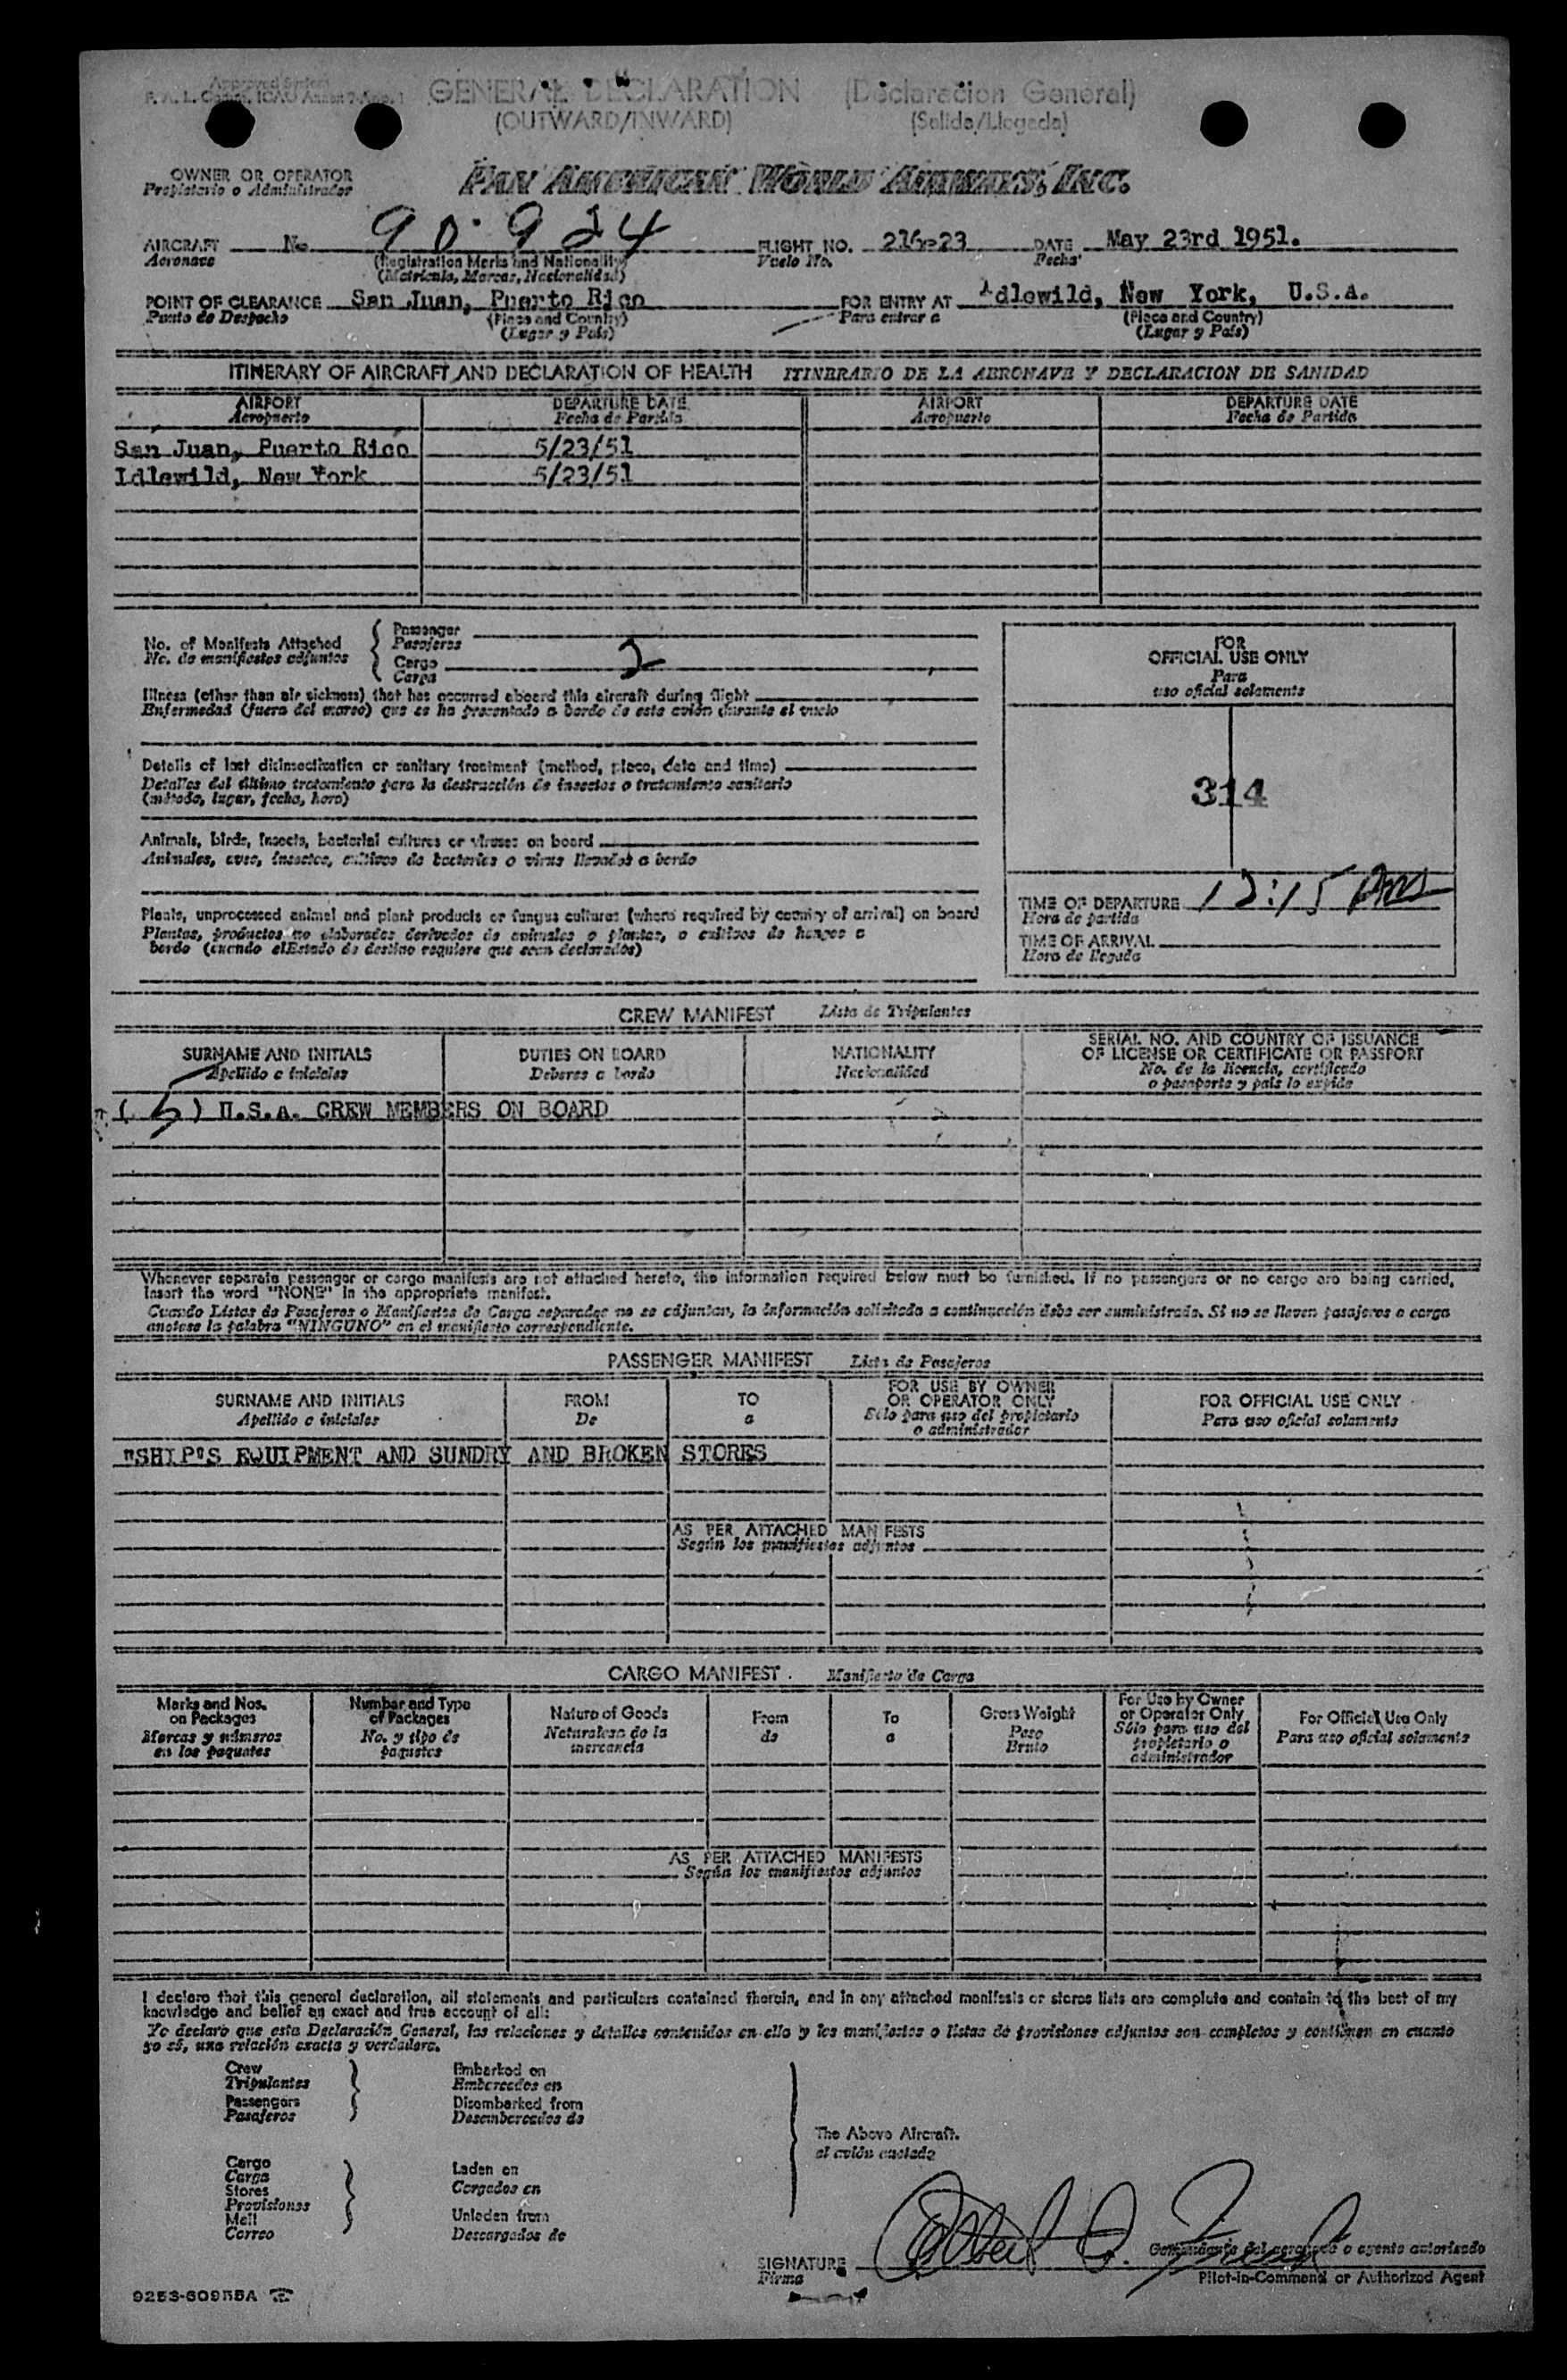 Approved Under
F. A. L. Comm. ICAO Annex 9-App. 1
GENERAL DECLARATION (Declaracion General)
(OUTWARD/INWARD) (Salida/Llegada)
OWNER OR OPERATOR
Propietario o Administrador
PAN AMERICAN WORLD AIRWAYS, INC.
AIRCRAFT No 90.924 FLIGHT NO. 216-23 DATE May 23rd 1951.
Aeronave (Registration Marks and Nationality) Vuelo No. Fecha
(Matricula, Marcas, Nacionalidad)
POINT OF CLEARANCE San Juan, Puerto Rico FOR ENTRY AT Idlewild, New York, U.S.A.
Punto de Despacho (Place and Country) Para entrar a (Place and Country)
(Lugar y País) (Lugar y País)
ITINERARY OF AIRCRAFT AND DECLARATION OF HEALTH ITINERARIO DE LA AERONAVE Y DECLARACION DE SANIDAD
AIRPORT DEPARTURE DATE AIRPORT DEPARTURE DATE
Aeropuerto Fecha de Partida Aeropuerto Fecha de Partida
San Juan, Puerto Rico 5/23/51
Idlewild, New York 5/23/51
No. of Manifests Attached
No. de manifiestos adjuntos
Passenger
Pasajeros
Cargo 2
Carga
Illness (other than air sickness) that has occurred aboard this aircraft during flight
Enfermedad (fuera del mareo) que se ha presentado a bordo de este avión durante el vuelo
Details of last disinsectization or sanitary treatment (method, place, date and time)
Detalles del último tratamiento para la destrucción de insectos o tratamiento sanitario
(método, lugar, fecha, hora)
Animals, birds, insects, bacterial cultures or viruses on board
Animales, aves, insectos, cultivos de bacterias o virus llevados a bordo
Plants, unprocessed animal and plant products or fungus cultures (where required by country of arrival) on board
Plantas, productos no elaborados derivados de animales o plantas, o cultivos de hongos a
bordo (cuando elEstado de destino requiere que sean declarados)
FOR
OFFICIAL USE ONLY
Para
uso oficial solamente
314
TIME OF DEPARTURE 12:15 Am
Hora de partida
TIME OF ARRIVAL
Hora de llegada
CREW MANIFEST Lista de Tripulantes
SURNAME AND INITIALS DUTIES ON BOARD NATIONALITY SERIAL NO. AND COUNTRY OF ISSUANCE
OF LICENSE OR CERTIFICATE OR PASSPORT
Apellido e iniciales Deberes a bordo Nacionalidad No. de la licencia, certificado
o pasaporte y país lo expide
( 5 ) U.S.A. CREW MEMBERS ON BOARD
Whenever separate passenger or cargo manifests are not attached hereto, the information required below must be furnished. If no passengers or no cargo are being carried,
insert the word "NONE" in the appropriate manifest.
Cuando Listas de Pasajeros o Manifiestos de Carga separados no se adjuntan, la información solicitada a continuación debe ser suministrada. Si no se llevan pasajeros o carga
anótese la palabra "NINGUNO" en el manifiesto correspondiente.
PASSENGER MANIFEST Lista de Pasajeros
SURNAME AND INITIALS FROM TO FOR USE BY OWNER
OR OPERATOR ONLY FOR OFFICIAL USE ONLY
Apellido e iniciales De a Sólo para uso del propietario
o administrador Para uso oficial solamente
"SHIP"S EQUIPMENT AND SUNDRY AND BROKEN STORES
AS PER ATTACHED MANIFESTS
Según los manifiestos adjuntos
CARGO MANIFEST . Manifiesto de Carga
Marks and Nos.
on Packages
Marcas y números
en los paquetes
Number and Type
of Packages
No. y tipo de
paquetes
Nature of Goods
Naturaleza de la
mercancía
From
de
To
a
Gross Weight
Peso
Bruto
For Use by Owner
or Operator Only
Sólo para uso del
propietario o
administrador
For Official Use Only
Para uso oficial solamente
AS PER ATTACHED MANIFESTS
Según los manifiestos adjuntos
I declare that this general declaration, all statements and particulars contained therein, and in any attached manifests or stores lists are complete and contain to the best of my
knowledge and belief an exact and true account of all:
Yo declaro que esta Declaración General, las relaciones y detalles contenidos en ella y los manifiestos o listas de provisiones adjuntos son completos y contienen en cuanto
yo sé, una relación exacta y verdadera.
Crew Embarked on
Tripulantes Embarcados en
Passengers Disembarked from
Pasajeros Desembarcados de
The Above Aircraft.
el avión anotado
Cargo Laden on
Carga Cargados en
Stores
Provisiones
Mail Unladen from
Correo Descargados de
SIGNATURE
Firma
Comandante del aeronave o agente autorizado
Pilot-in-Command or Authorized Agent
9253-60955A